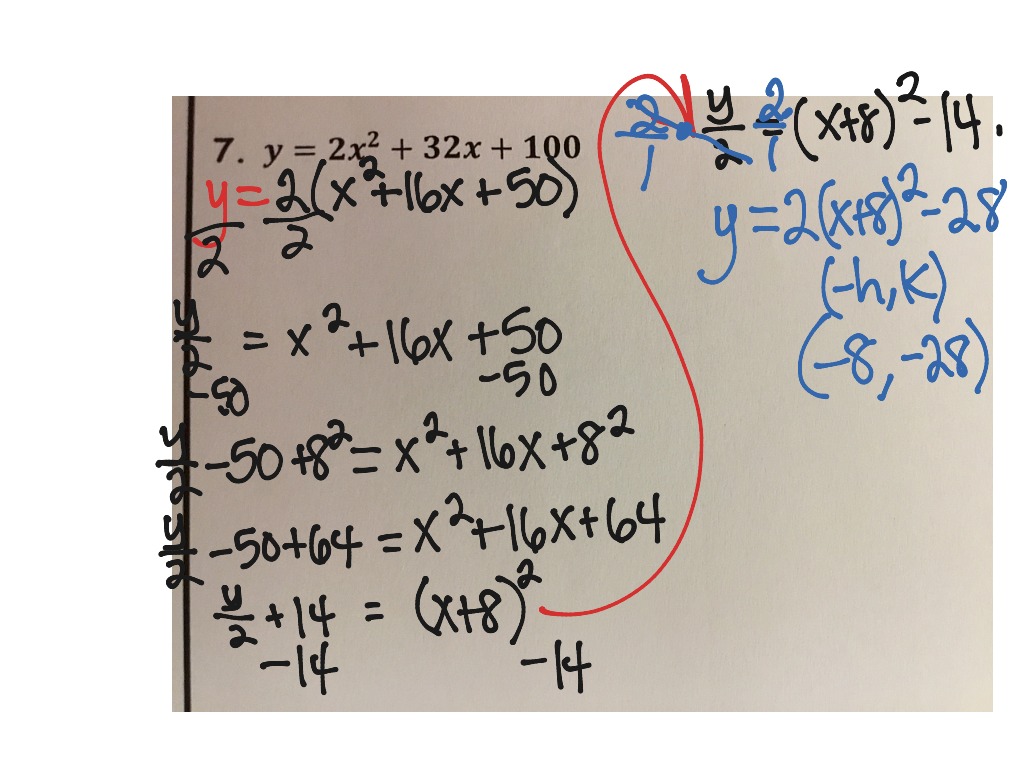 7. y = 2x² + 32x + 100
y = 2(x² + 16x + 50)
2 2
y/2 = x² + 16x + 50
-50 -50
y/2 - 50 + 8² = x² + 16x + 8²
y/2 - 50 + 64 = x² + 16x + 64
y/2 + 14 = (x+8)²
-14 -14
2/1 · y/2 = 2/1 (x+8)² - 14.
y = 2(x+8)² - 28
(-h, k)
(-8, -28)